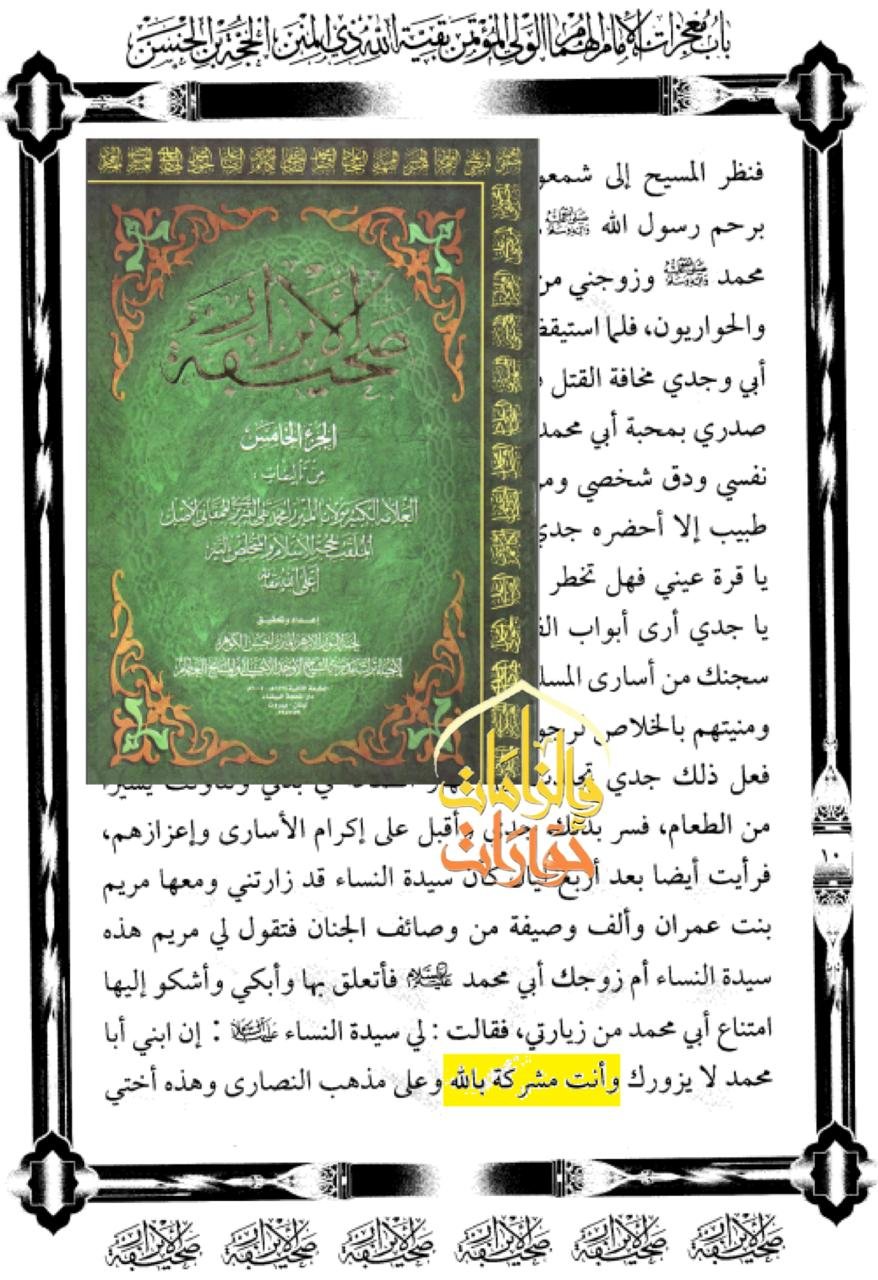 باب معجزات الإمام الهمام الولي المؤتمن بقية الله ذي المنن الحجة بن الحسن
فنظر المسيح إلى شمعو
برحم رسول الله ﷺ
محمد ﷺ وزوجني من
والحواريون، فلما استيقظ
أبي وجدي مخافة القتل
صدري بمحبة أبي محمد
نفسي ودق شخصي ومر
طبيب إلا أحضره جدي
يا قرة عيني فهل تخطر
يا جدي أرى أبواب الف
سجنك من أسارى المسلـ
ومنيتهم بالخلاص رجو
فعل ذلك جدي
من الطعام، فسر بذلك جدي وأقبل على إكرام الأسارى وإعزازهم،
فرأيت أيضا بعد أربع ليال كأن سيدة النساء قد زارتني ومعها مريم
بنت عمران وألف وصيفة من وصائف الجنان فتقول لي مريم هذه
سيدة النساء أم زوجك أبي محمد عليه السلام فأتعلق بها وأبكي وأشكو إليها
امتناع أبي محمد من زيارتي، فقالت : لي سيدة النساء عليها السلام : إن ابني أبا
محمد لا يزورك وأنت مشركة بالله وعلى مذهب النصارى وهذه أختي
صحيفة الأبرار
الجزء الخامس
من تأليفات :
الملقب بحجة الإسلام والمتخلص بنير
أعلى الله مقامه
إعداد وتحقيق
لبنان - بيروت
حوارات
وإلزامات
١٠
صحيفة الأبرار صحيفة الأبرار صحيفة الأبرار صحيفة الأبرار صحيفة الأبرار صحيفة الأبرار